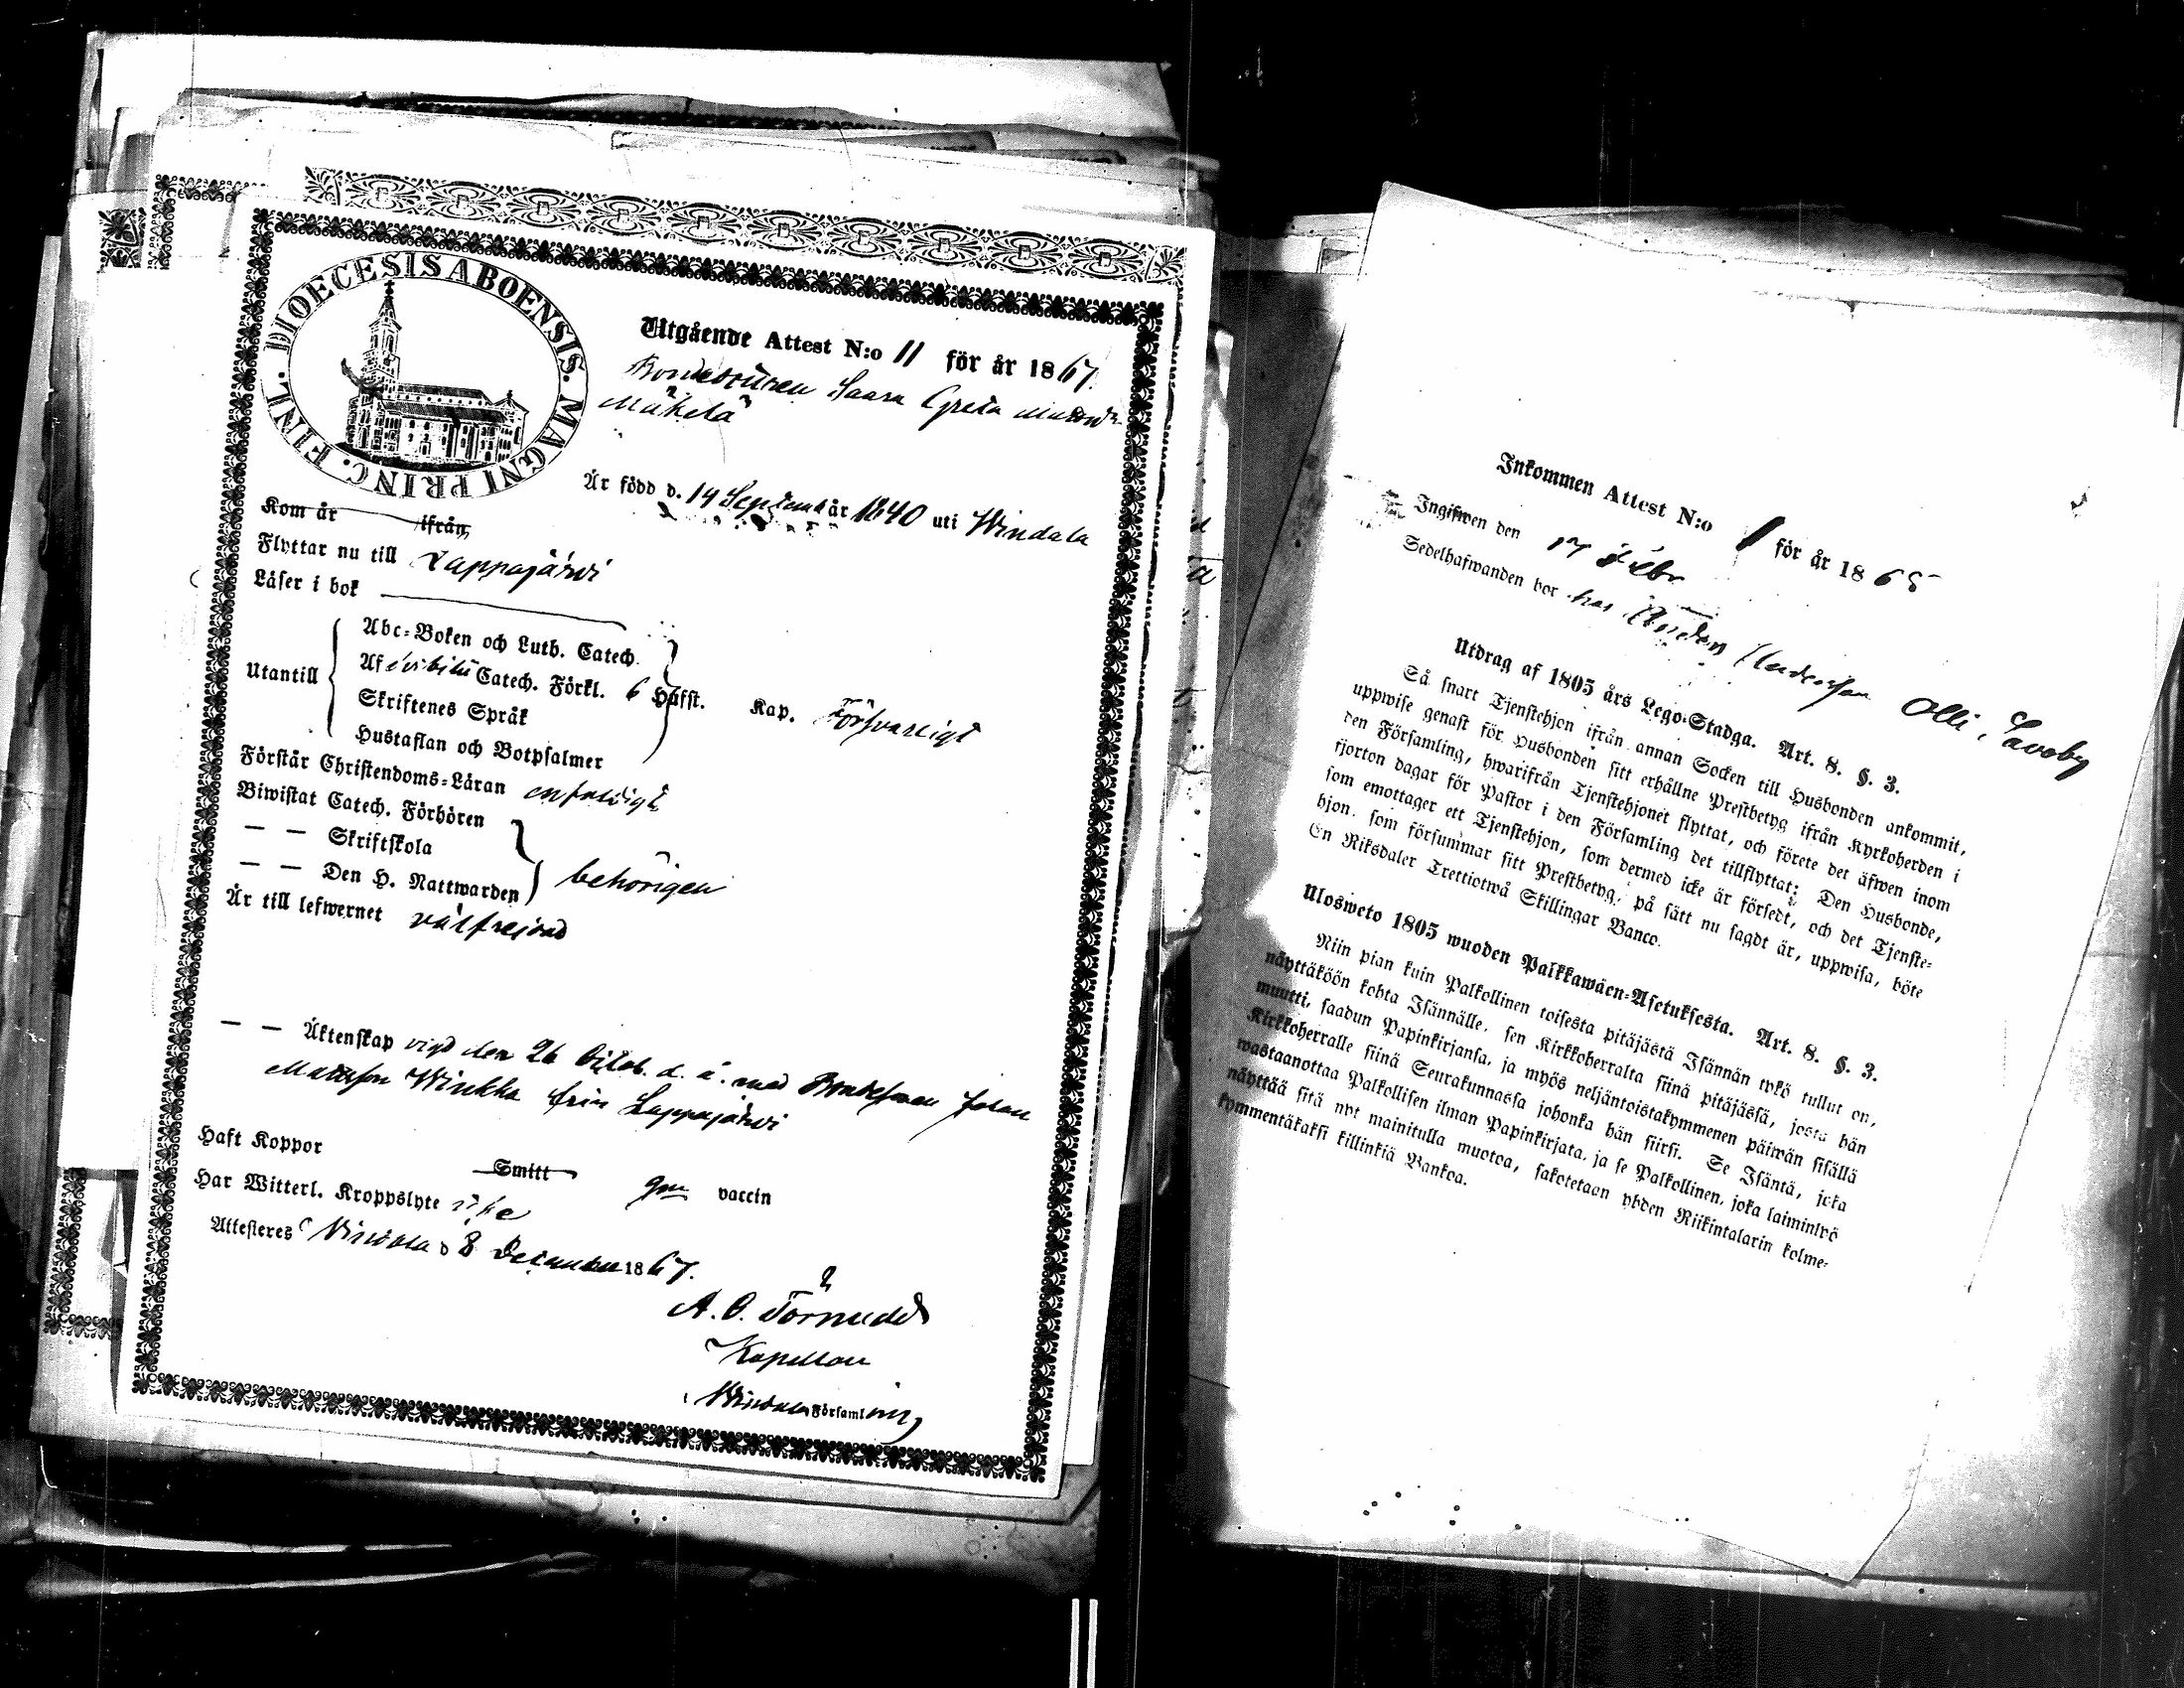 FINL. DIOECESIS ABOENSIS. MAGNI PRINC.
Utgående Attest N:o 11 för år 1867.
Bondedottren Saara Greta Mattsdr
Mäkelä
Är född d. 14 September år 1840 uti Windala
Kom år ifrån
Flyttar nu till Lappajärvi
Läser i bok
Utantill
Abc-Boken och Luth. Catech.
Af Catech. Förkl. 6 Hufst. Kap. Försvarligt
Skriftenes Språk
Hustaflan och Botpsalmer
Förstår Christendoms-Läran enfaldigt
Biwistat Catech. Förhören
— — Skriftskola
— — Den H. Nattwarden behörigen
Är till lefwernet välfrejdad
— — Äktenskap vigd den 26 Octob. d. å. med Bondesonen Johan
Mattsson Winkka från Lappajärvi
Haft Koppor Smitt gm vaccin
Har Witterl. Kroppslyte icke
Attesteras Vindala d 8 December 1867.
A. O. Törnudd
Kapellan
i Windala Församling
Inkommen Attest N:o 1 för år 1865
Ingifwen den 17 Febr
Sedelhafwanden bor hos Anders Andersson Olli, Savoby
Utdrag af 1805 års Lego-Stadga. Art. 8. §. 3.
Så snart Tjenstehjon ifrån annan Socken till Husbonden ankommit,
uppwise genast för Husbonden sitt erhållne Prestbetyg ifrån Kyrkoherden i
den Församling, hwarifrån Tjenstehjonet flyttat, och förete det äfwen inom
fjorton dagar för Pastor i den Församling det tillflyttat; Den Husbonde,
som emottager ett Tjenstehjon, som dermed icke är försedt, och det Tjenste-
hjon, som försummar sitt Prestbetyg, på sätt nu sagdt är, uppwisa, böte
En Riksdaler Trettiotwå Skillingar Banco.
Ulosweto 1805 wuoden Palkkawäen-Asetuksesta. Art. 8. §. 3.
Niin pian kuin Palkollinen toisesta pitäjästä Isännän tykö tullut on,
näyttäköön kohta Isännälle, sen Kirkkoherralta siinä pitäjässä, josta hän
muutti, saadun Papinkirjansa, ja myös neljäntoistakymmenen päiwän sisällä
Kirkkoherralle siinä Seurakunnassa johonka hän siirsi. Se Isäntä, joka
wastaanottaa Palkollisen ilman Papinkirjata, ja se Palkollinen, joka laiminlyö
näyttää sitä nyt mainitulla muotoa, sakotetaan yhden Riikintalarin kolme-
kymmentäkaksi killinkiä Bankoa.